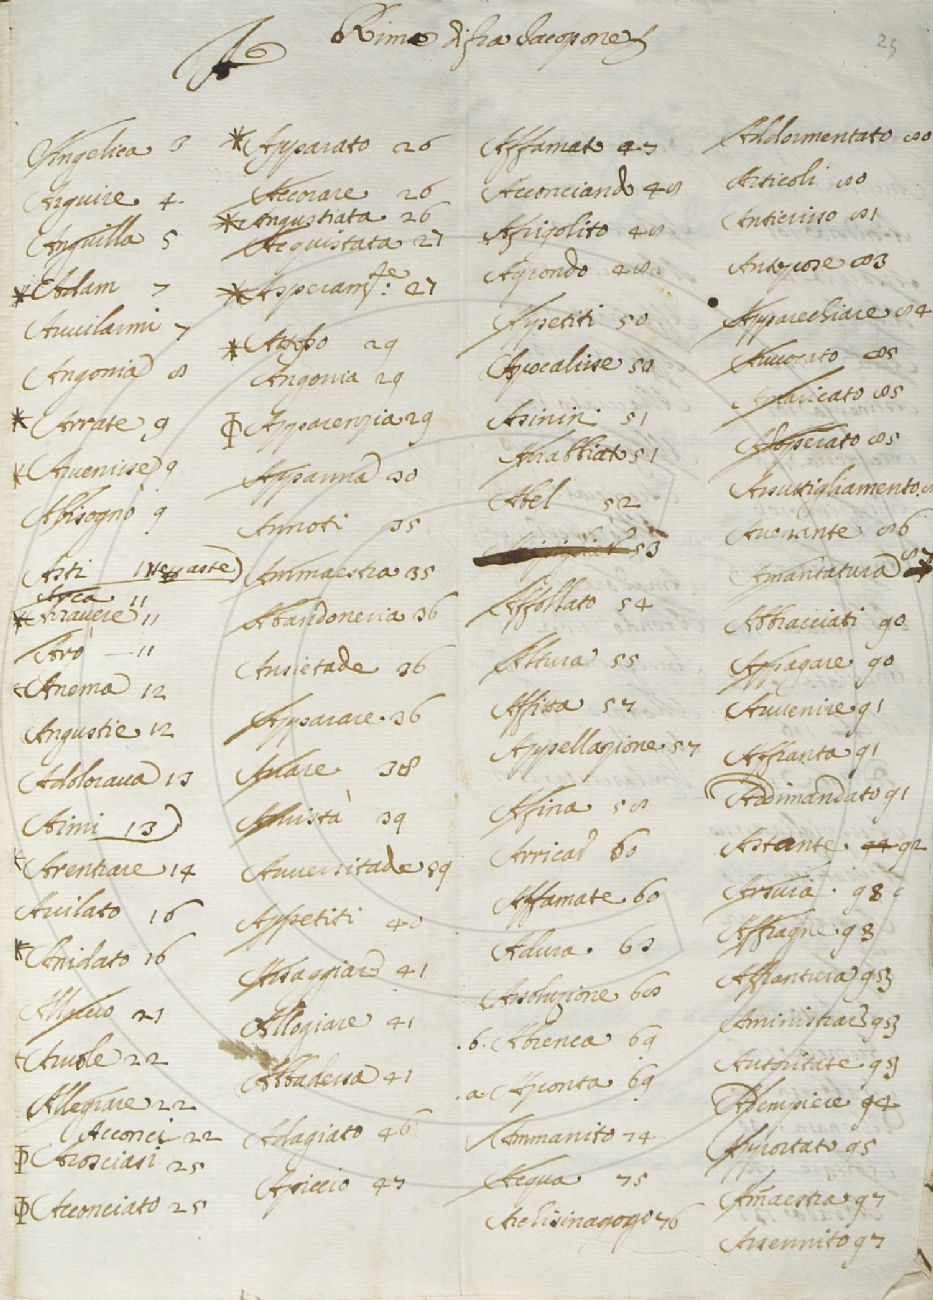 A
Rime di fra Jacopone
25
Angelica 3
Arguire 4
Anguilla 5
Adam 7
Auuilarmi 7
Angonia 8
Arrate 9
Auenisse 9
Abisogno 9
Arti 11
Arca 11
Arauere 11
Arò 11
Anema 12
Angustie 12
Adoloraua 13
Aimi 13
Arentrare 14
Auilato 16
Anidato 16
21
Auole 22
Allegrare 22
Acconci 22
Arosciasi 25
Acconciato 25
Apparato 26
Accorare 26
Angustiata 26
Acquistata 27
27
29
Angonia 29
Apparenzia 29
Appanna 30
Annoti 35
Ammaestra 35
Abandoneria 36
Ansietade 36
Apparare 36
Auare 38
39
Auuersitade 39
Appetiti 40
Assaggiare 41
Allegiare 41
Abbadessa 41
Adagiato 46
Apiccio 47
Affamate 47
Acconciando 48
Apipolito 48
48
Appetiti 50
Apocalisse 50
Asinin 51
Arrabbiato 51
Abel 52
53
Affollato 54
Altura 55
Affissa 57
Appellazione 57
Affina 58
60
Affamate 60
Adura 63
Assoluzione 68
.b. 69
.a. Aponta 69
Ammanito 74
Acqua 75
Archisinagogo 76
Addormentato 80
Articoli 80
81
83
Apparechiare 84
Auuocato 85
85
85
Assuttigliamento
Auenante 86
Amantatura 87
Abbracciati 90
Appagare 90
Auuenire 91
Affranta 91
Addimandato 91
Astante 92
Arsura 98
Affragne 93
Affrantura 93
93
Autoritate 93
Adempiere 94
Apportato 95
Amaestra 97
Assennito 97